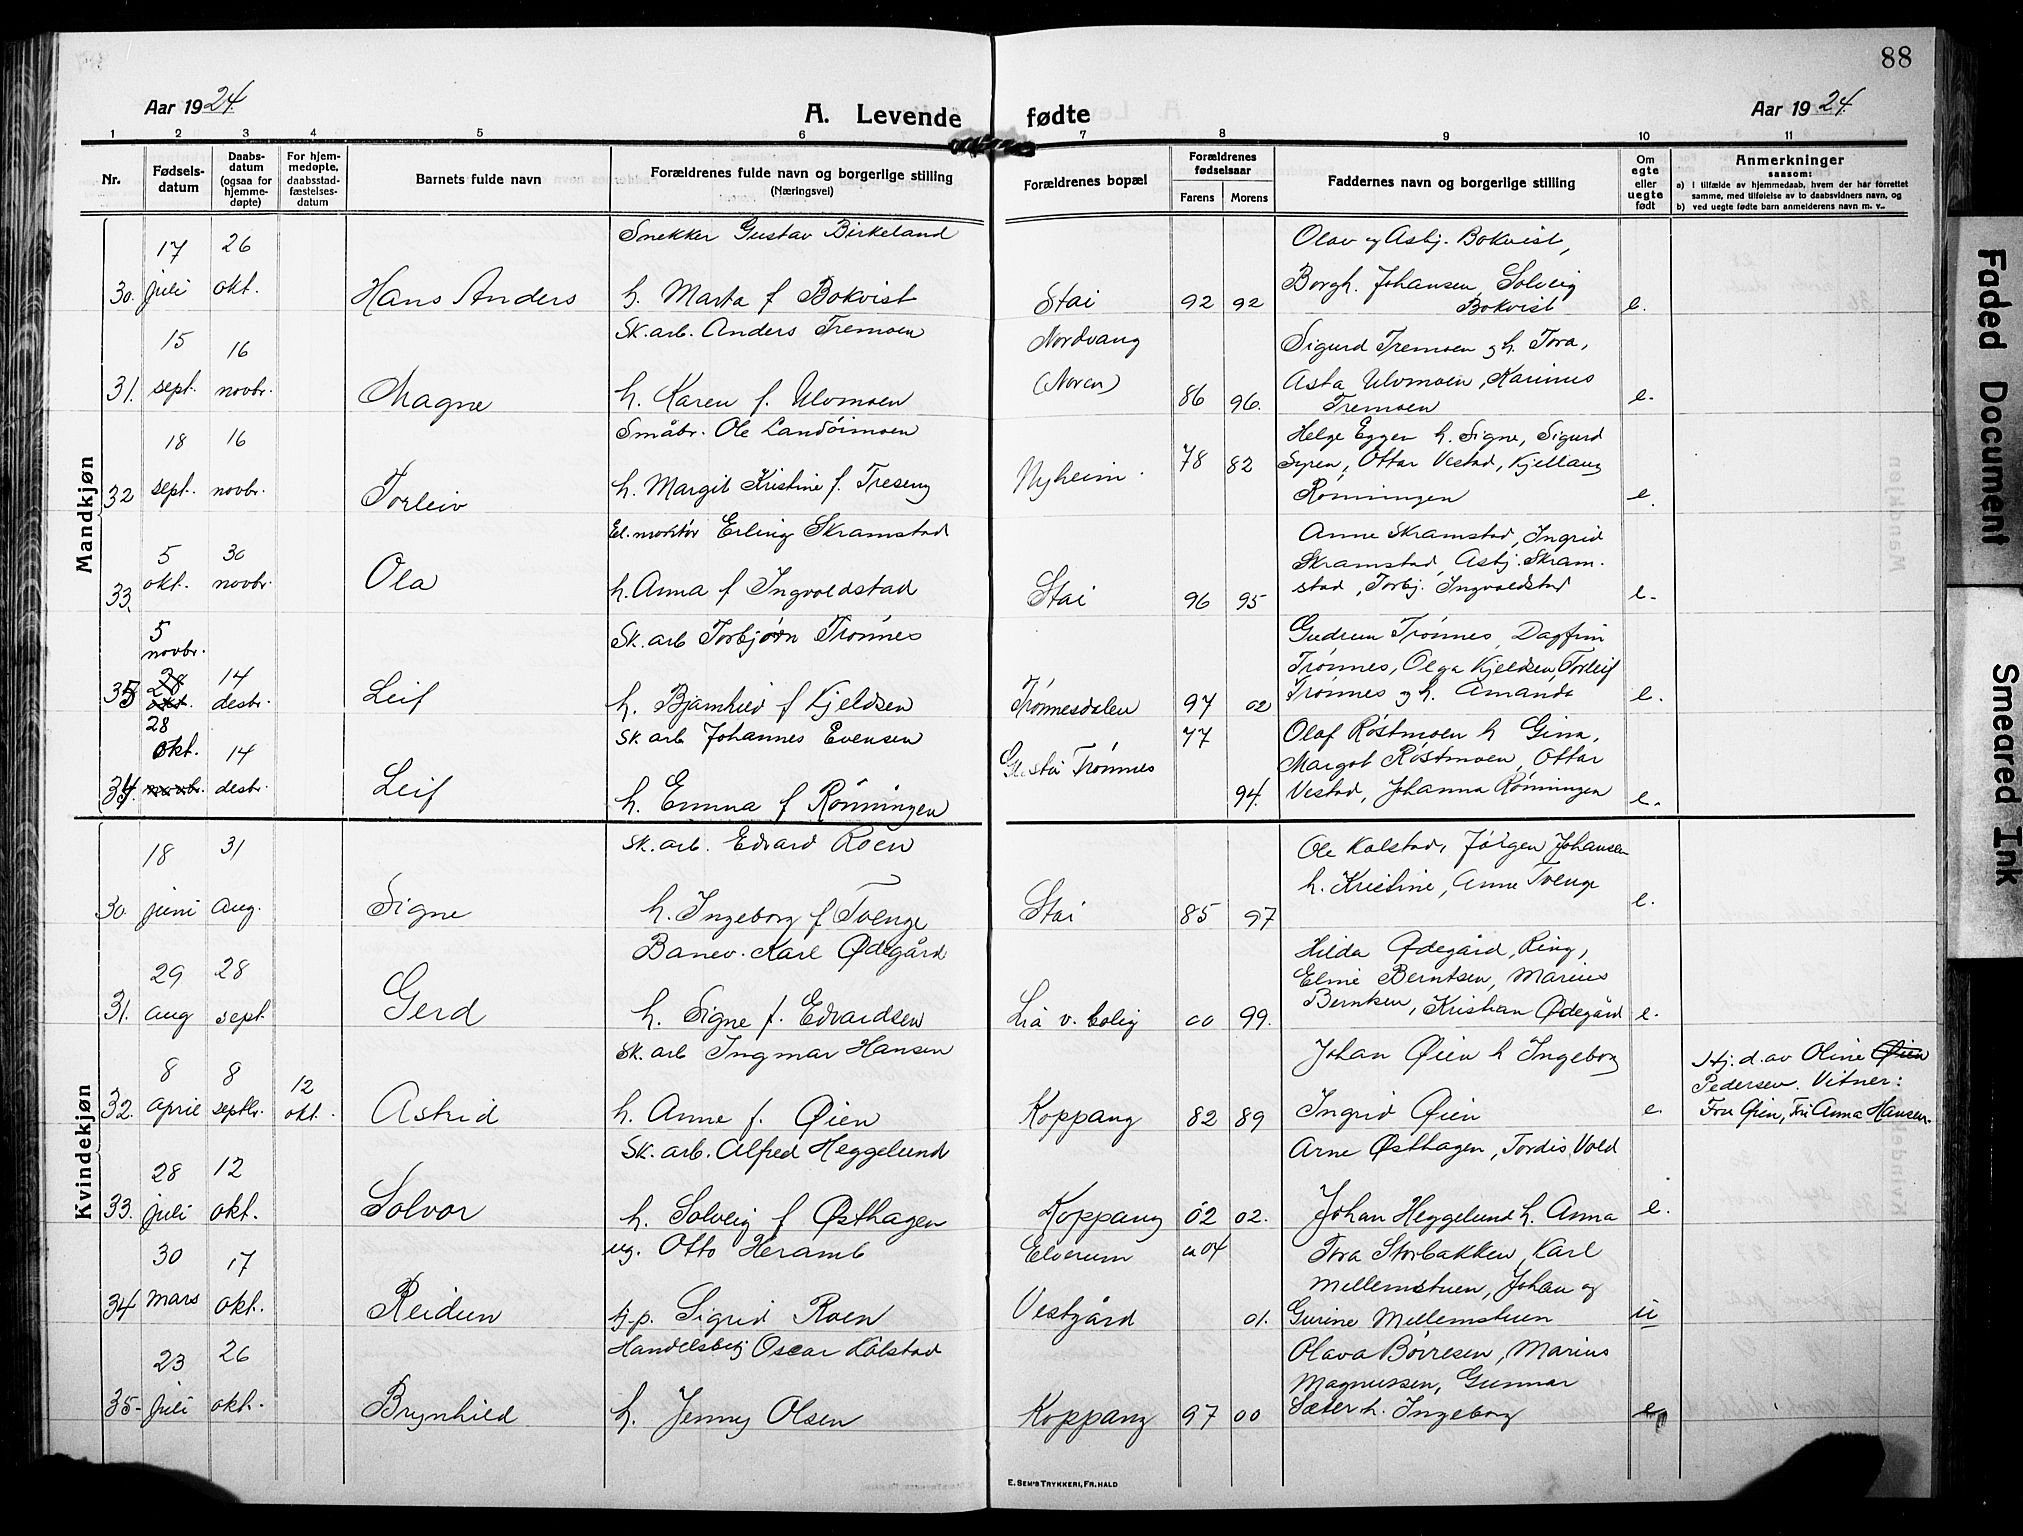 88
Aar 1924.
A. Levende fødte
Aar 1924.
1 2 3 4 5 6 7 8 9 10 11
Nr.
Fødsels-
datum
Daabs-
datum
(ogsaa for
hjemme-
døpte)
For hjem-
medøpte,
daabsstad-
fæstelses-
datum
Barnets fulde navn
Forældrenes fulde navn og borgerlige stilling
(Næringsvei)
Forældrenes bopæl
Forældrenes
fødselsaar
Farens Morens
Faddernes navn og borgerlige stilling
Om
egte
eller
uegte
født
Anmerkninger
saasom:
a) i tilfælde av hjemmedaab, hvem der har forrettet
samme, med tilføielse av to daabsvidners navn, og
b) ved uegte fødte barn anmelderens navn m. v..
Mandkjøn
17 26 Snekker Gustav Birkeland Olav og Asbj. Bokvist,
30. juli okt. Hans Anders h. Marta f Bokvist Stai 92 92 Borgh. Johansen, Solveig
Bokvist e.
15 16 Sk. arb. Anders Tremoen Nordvang Sigurd Tremoen og h. Tora,
31. sept. novbr. Magne h. Karen f. Ulvmoen (Noren) 86 96. Asta Ulvmoen, Karinus
Tremoen e.
18 16 Småbr. Ole Landøimoen Helge Eggen h. Signe, Sigurd
32 sept. novbr. Torleiv h. Margit Kristine f. Treseng Nyheim. 78 82 Syren, Ottar Vestad, Kjellaug
Rønningen e.
5 30 El. montør Erling Skramstad Anne Skramstad, Ingrid
Skramstad, Asbj. Skram-
33. okt. novbr. Ola h. Anna f Ingvoldstad Stai 96 95 stad, Torbj. Ingvoldstad e.
5 novbr. Sk. arb Torbjørn Trønnes Gudrun Trønnes, Dagfin
28 14 Trønnes, Olga Kjeldsen, Torleif
35 okt. desbr. Leif h. Bjamhild f Kjeldsen Trønnesdalen 97 02 Trønnes og h. Amanda e.
28 okt. 14 Sk. arb Johannes Evensen 77 Olaf Røstmoen h Gina,
Trønnes Margot Røstmoen, Ottar
34. novbr. desbr. Leif h. Emma f Rønningen 94. Vestad, Johanna Rønningen e.
Kvindekjøn
18 31 Sk. arb. Edvard Roen Ole Kolstad, Jørgen Johansen
30. juni aug. Signe h. Ingeborg f Tvenge Stai 85 97 h. Kristine, Anne Tvenge e.
29 28 Banev. Karl Ødegård Hilda Ødegård, Ring,
Eline Berntsen, Marius
31. aug sept. Gerd h. Signe f. Edvardsen Lia v. bolig 00 99. Berntsen, Kristian Ødegård e.
8 8 12 Sk. arb Ingmar Hansen Johan Øien h Ingeborg Hj. d. av Oline Øien
Pedersen. Vitner:
32. april septbr. okt. Astrid h. Anne f. Øien Koppang 82 89 Ingrid Øien e. Fru Øien, Frk Anna Hansen.
28 12 Sk. arb. Alfred Heggelund Arne Østhagen, Tordis Vold
33. juli okt. Solvor h. Solveig f Østhagen Koppang 02 02. Johan Heggelund h. Anna e.
30 17 ug. Otto Heramb Elverum ca 04 Tora Storbakken, Karl
Mellemstuen, Johan og
34 mars okt. Reidun tj. p. Sigrid Roen Vestgård 01. Gurine Mellemstuen u
23 26 Handelsbetj Oscar Kålstad Olava Børresen, Marius
Magnussen, Gunnar
35- juli okt. Brynhild h. Jenny Olsen Koppang 97 00 Sæter h. Ingeborg e
E. SEM'S TRYKKERI, FR. HALD
Faded Document
Smeared Ink